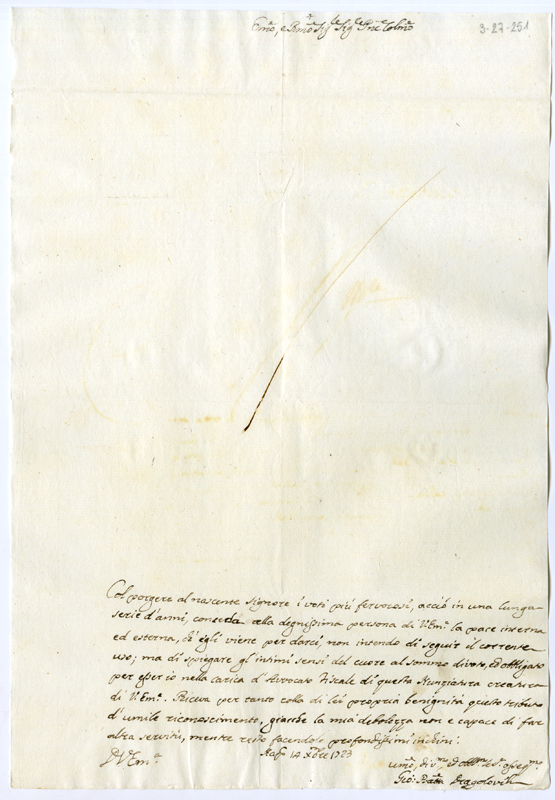 Em̃o, e Rm̃o Sig.r Sig.r Prõne Colm̃o
3-27-251
Col porgere al nascente Signore i voti più fervorosi, acciò in una lunga
serie d'anni, conceda alla degnissima persona di V. Em.a la pace interna
ed esterna, ch'egli viene per darci, non intendo di seguir il corrente
uso; ma di spiegare gl'intimi sensi del cuore al sommo divoto, ed obbligato
per esser io nella carica d'Avvocato Fiscale di questa Nunziatura creatura
di V. Em.a. Riceva per tanto colla di lei propria benignità questo tributo
d'umile riconoscimento, giacche la mia debolezza non è capace di fare
altra servitù, mentre resto facendole profondissimi inchini.
D V Em.a
14 Xbre 1723
Gio: Batta Dragolovich